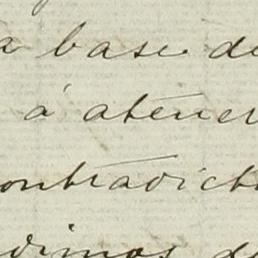 a base de
á atener
ontradict
dimos de